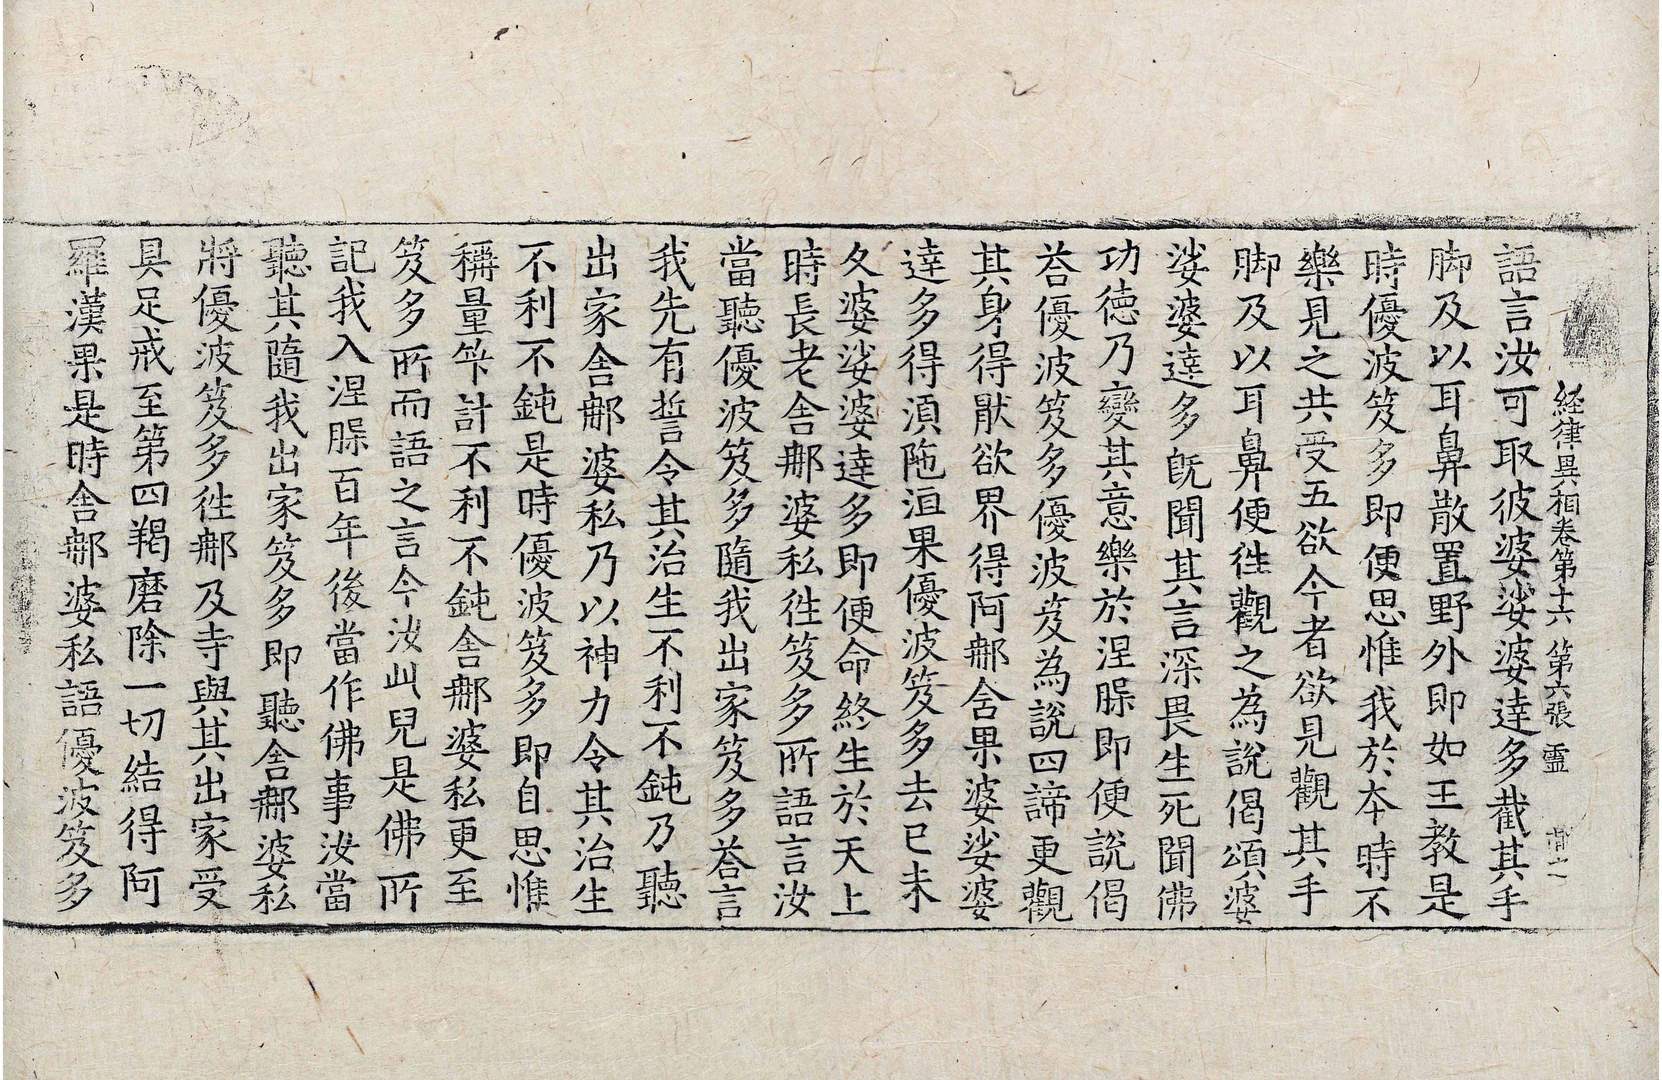 経律異相卷第十六 第六張 靈
語言汝可取彼婆娑婆達多截其手
脚及以耳鼻散置野外即如王教是
時優波笈多即便思惟我於本時不
樂見之共受五欲今者欲見觀其手
脚及以耳鼻便徃觀之為說偈頌婆
娑婆達多旣聞其言深畏生死聞佛
功德乃變其意樂於涅槃即便說偈
荅優波笈多優波笈為說四諦更觀
其身得猒欲界得阿那舍果婆娑婆
達多得湏陁洹果優波笈多去已未
久婆娑婆達多即便命終生於天上
時長老舍那婆私徃笈多所語言汝
當聽優波笈多隨我出家笈多荅言
我先有誓令其治生不利不鈍乃聽
出家舍那婆私乃以神力令其治生
不利不鈍是時優波笈多即自思惟
稱量筭計不利不鈍舍那婆私更至
笈多所而語之言今汝此兒是佛所
記我入涅槃百年後當作佛事汝當
聽其隨我出家笈多即聽舍那婆私
將優波笈多徃那及寺與其出家受
具足戒至第四羯磨除一切結得阿
羅漢果是時舍那婆私語優波笈多